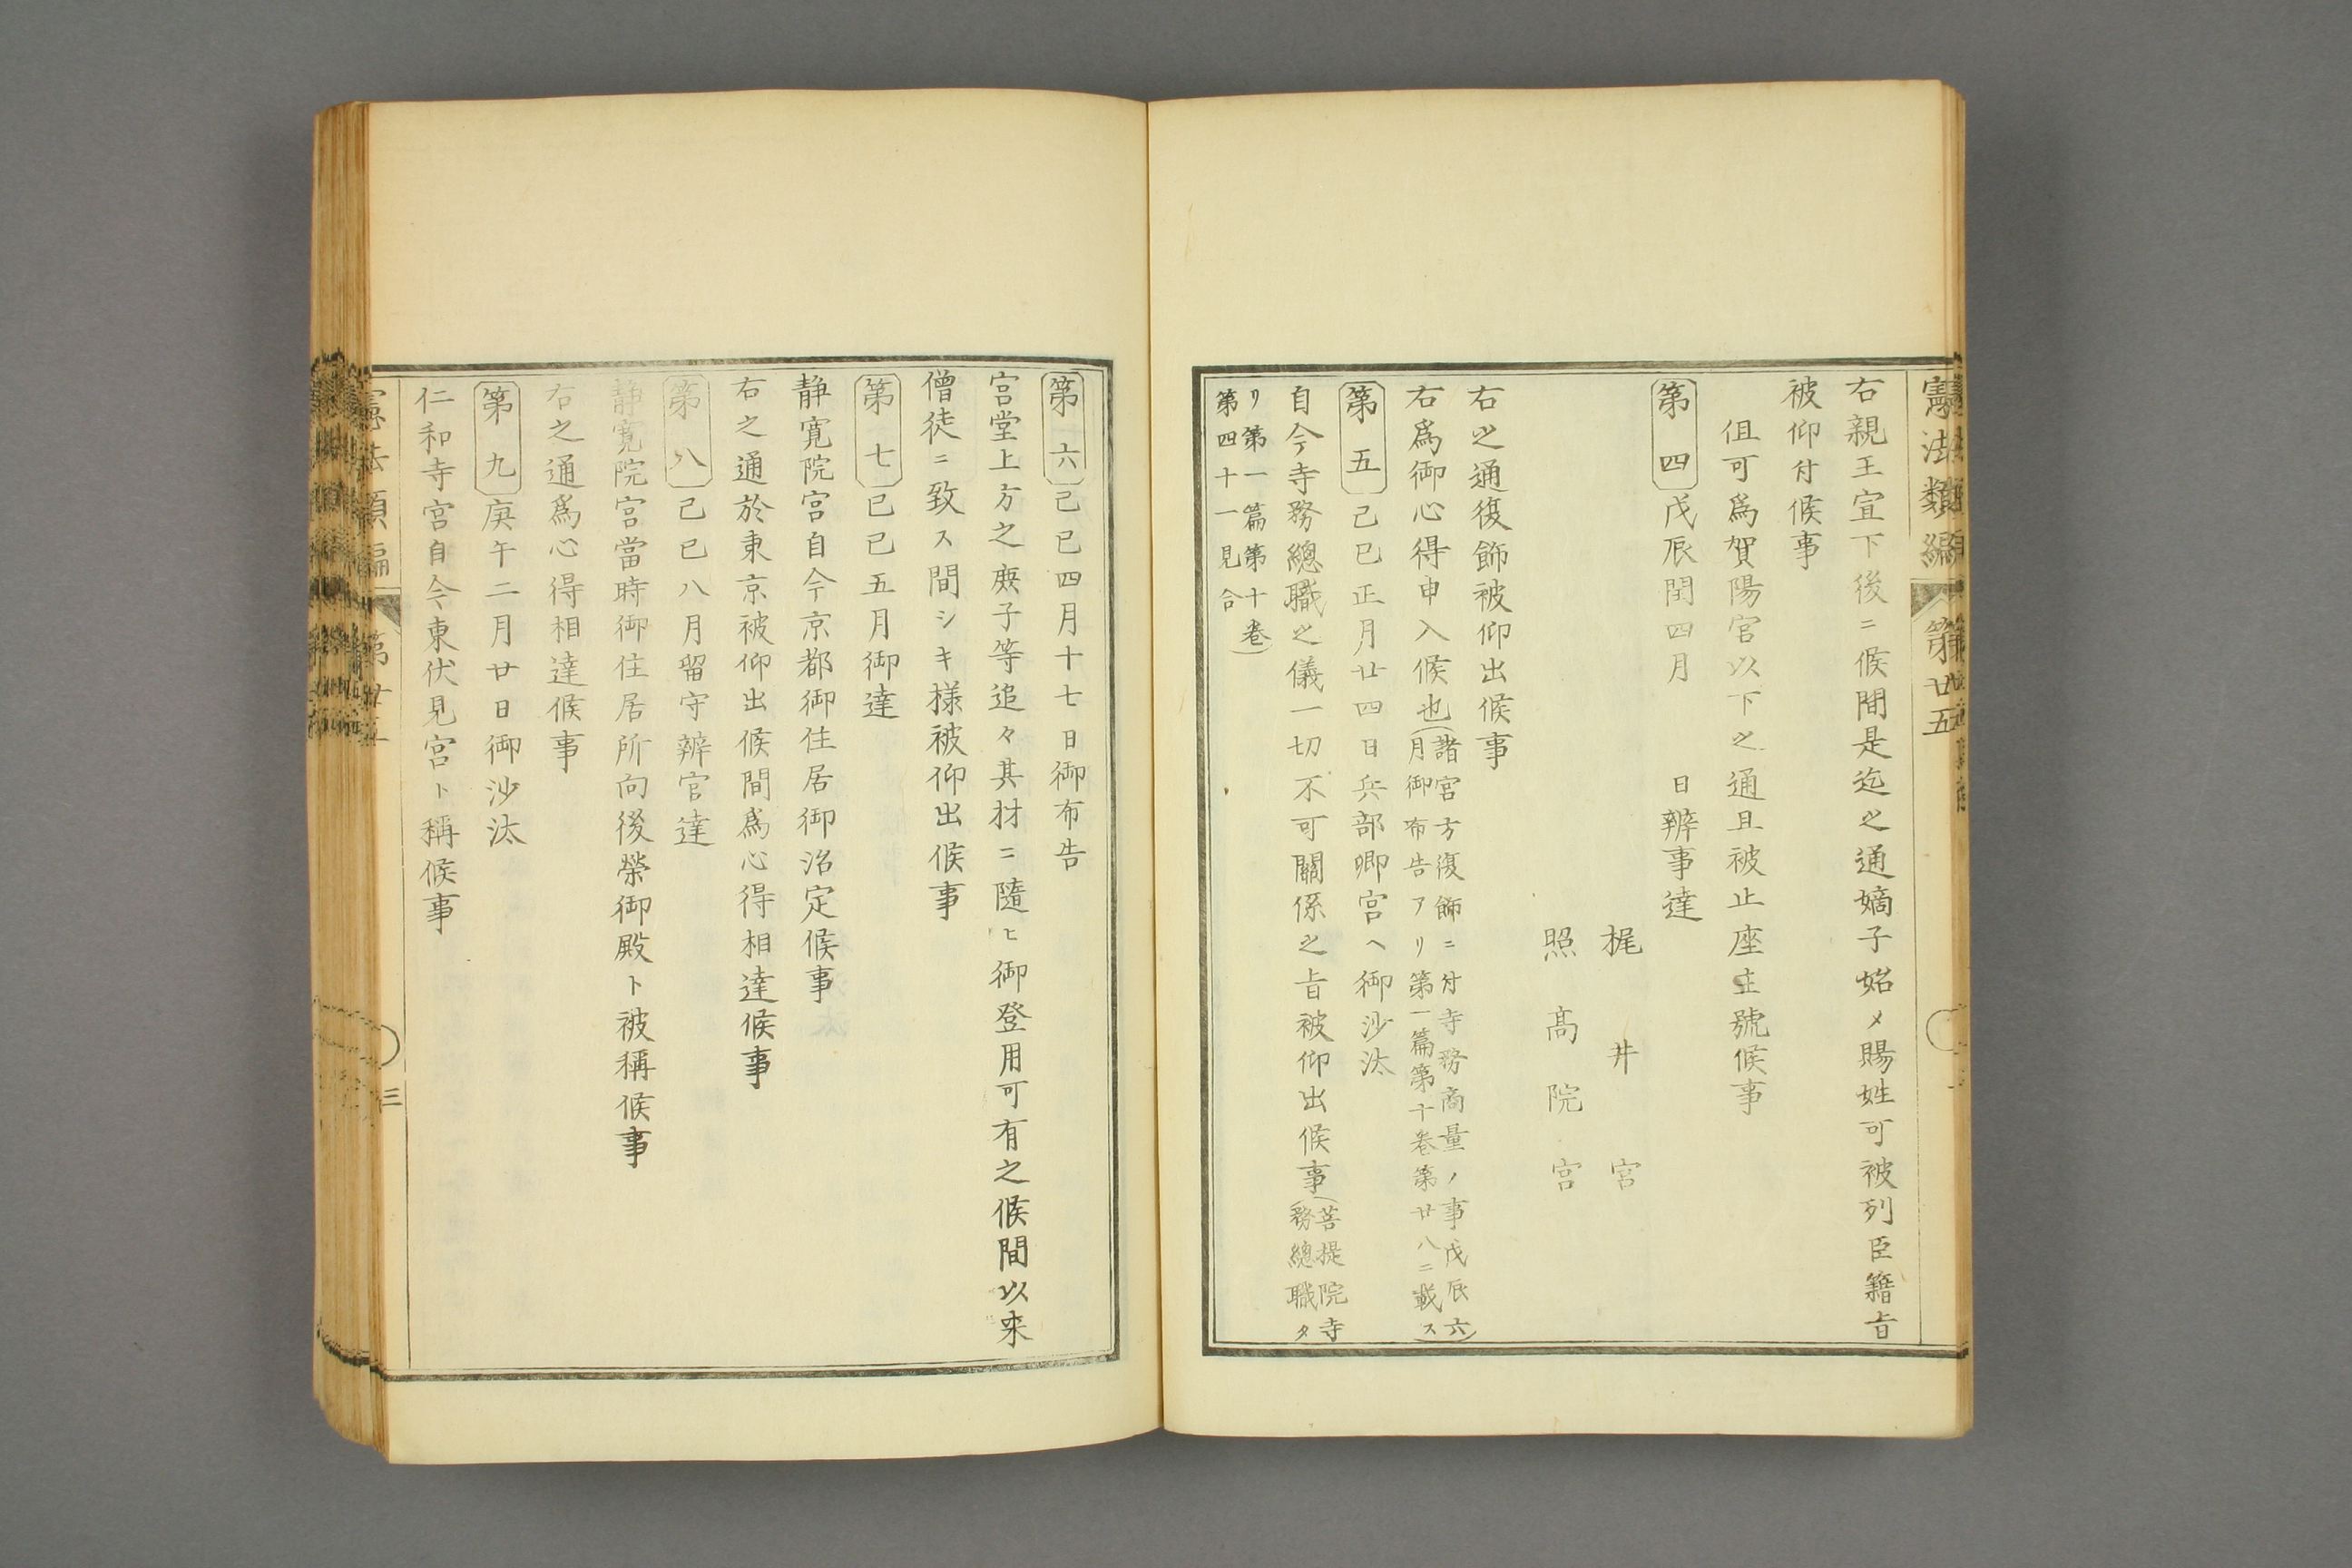 憲法類編 第廿五
右親王宣下後ニ候間是迄之通嫡子始メ賜姓可被列臣籍旨
被仰付候事
但可爲賀陽宮以下之通且被止座主號候事
第四 戊辰閏四月 日辨事達
梶井宮
照髙院宮
右之通復飾被仰出候事
右爲御心得申入候也(諸宮方復飾ニ付寺務商量ノ事戊辰六
月御布告アリ第一篇第十卷第廿八ニ載ス)
第五 己巳正月廿四日兵部卿宮ヘ御沙汰
自今寺務總職之儀一切不可關係之旨被仰出候事(菩提院寺
務總職タ
リ第一篇第十卷)
第四十一見合
第六 己巳四月十七日御布告
宮堂上方之庶子等追々其材ニ隨ヒ御登用可有之候間以来
僧徒ニ致ス間シキ様被仰出候事
第七 己巳五月御達
静寛院宮自今京都御住居御治定候事
右之通於東京被仰出候間爲心得相達候事
第八 己巳八月留守辨官達
静寛院宮當時御住居所向後榮御殿ト被稱候事
右之通爲心得相達候事
第九 庚午二月廿日御沙汰
仁和寺宮自今東伏見宮ト稱候事
憲法類編 第廿五 三